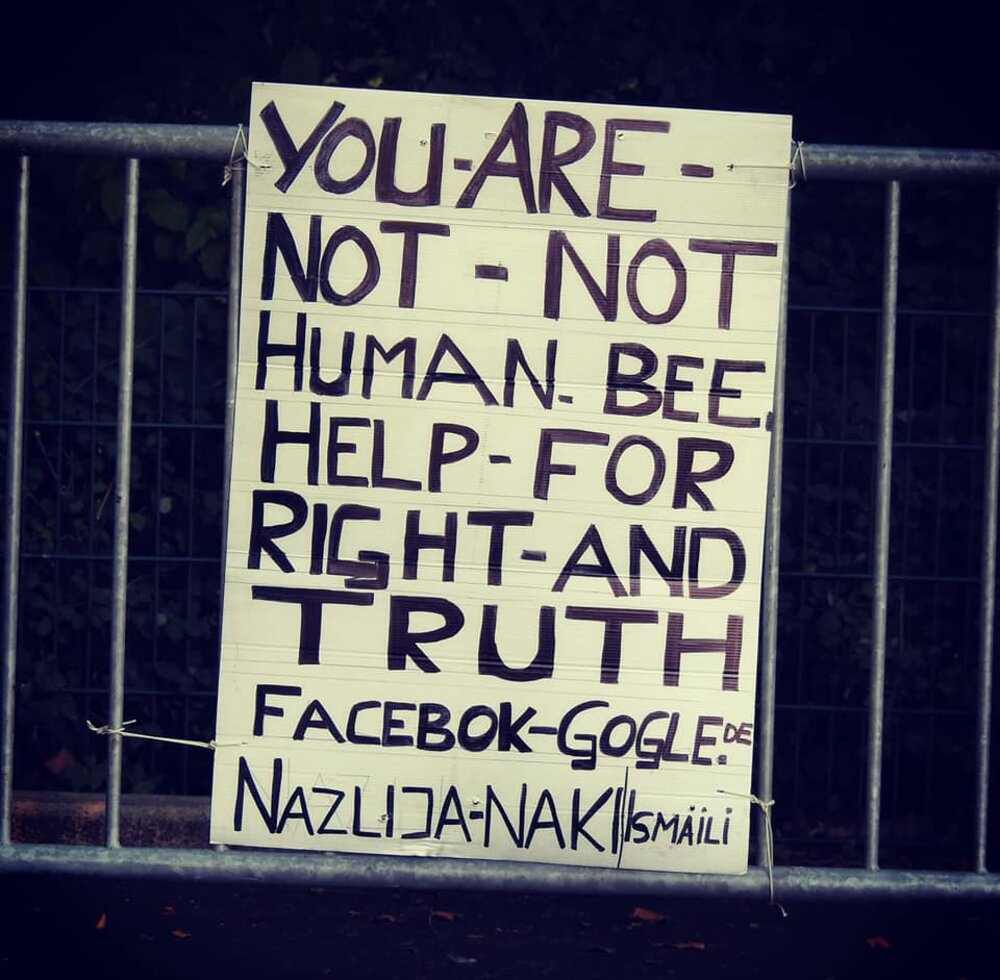 YOU-ARE-
NOT-NOT
HUMAN. BEE.
HELP-FOR
RIGHT-AND
TRUTH
FACEBOK-GOGLE.DE
NAZLIJA-NAKI ISMÄILI